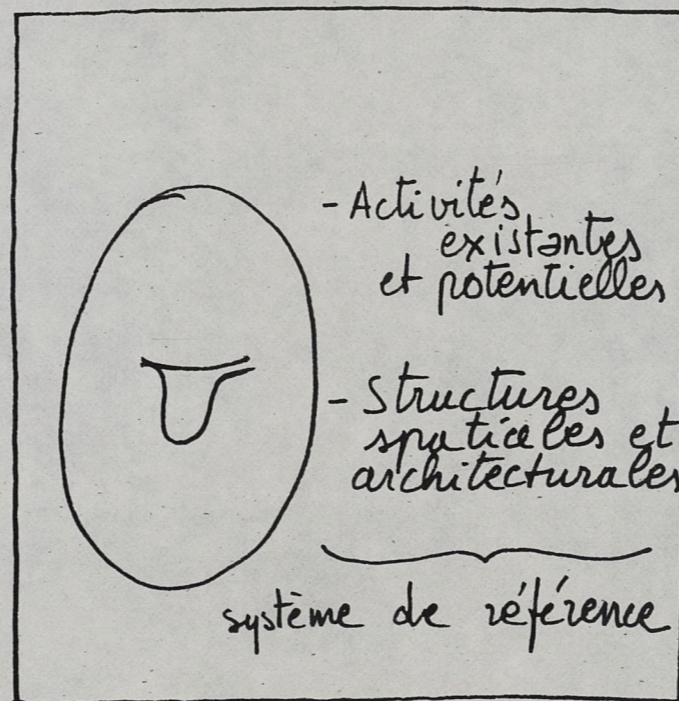 - Activités
existantes
et potentielles
- Structures
spatiales et
architecturales
système de référence